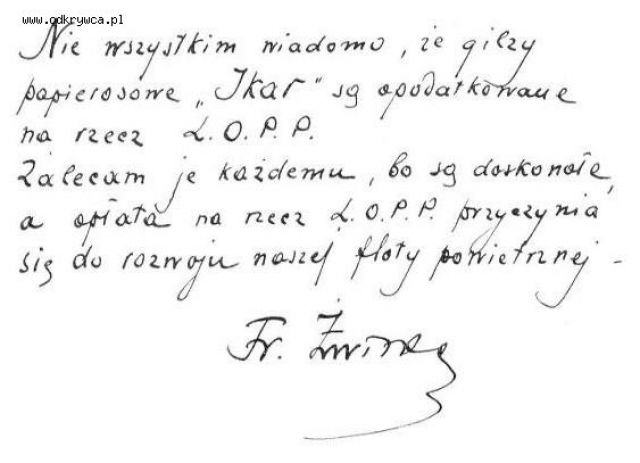 www.odkrywca.pl
Nie wszystkim wiadomo, że gilzy
papierosowe „Ikar" są opodatkowane
na rzecz L.O.P.P.
Zalecam je każdemu, bo są doskonałe,
a opłata na rzecz L.O.P.P. przyczynia
się do rozwoju naszej floty powietrznej -
Fr. Żwirko